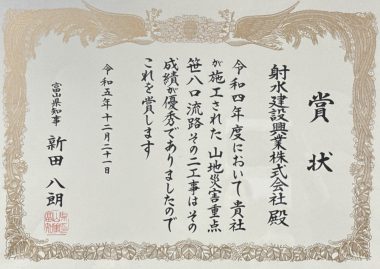 賞状
射水建設興業株式会社 殿
令和四年度において貴社
が施工された 山地災害重点
笹八口流路その二工事はその
成績が優秀でありましたので
これを賞します
令和五年十二月二十一日
富山県知事 新田 八朗